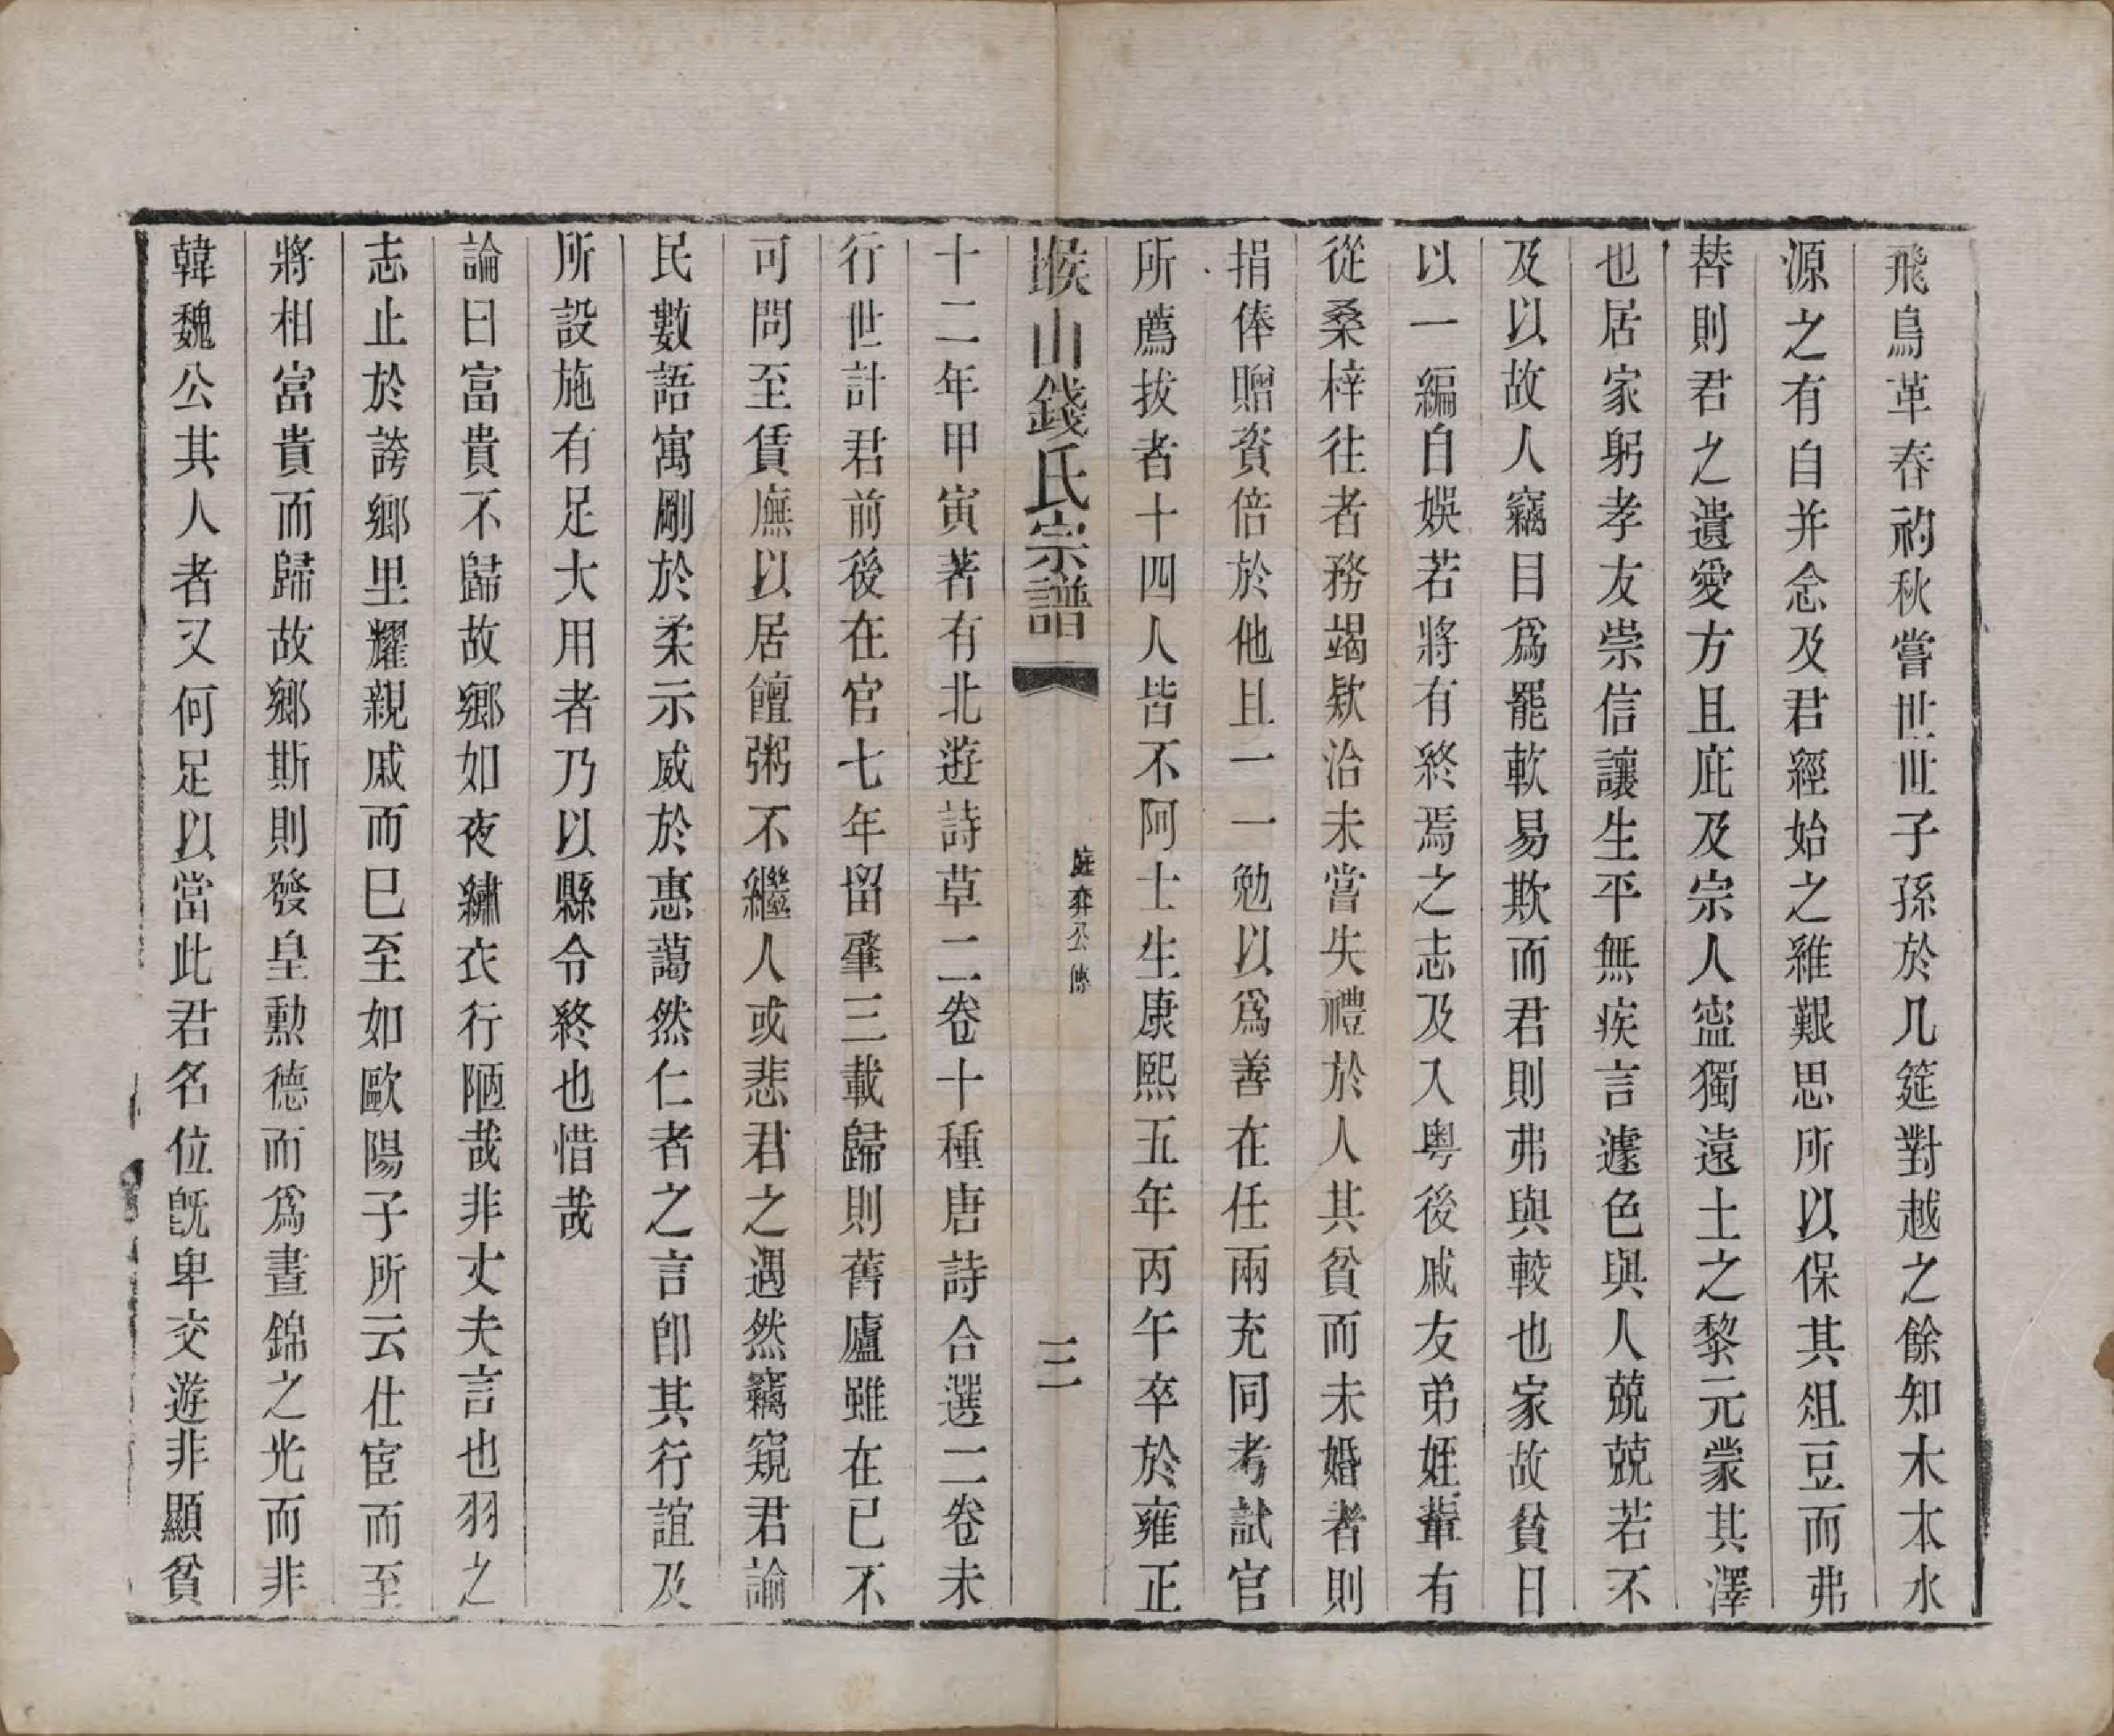 飛鳥革春礿秋嘗世世子孫於几筵對越之餘知木本水
源之有自并念及君經始之維艱思所以保其俎豆而弗
替則君之遺愛方且庇及宗人寍獨遠土之黎元蒙其澤
也居家躬孝友崇信讓生平無疾言遽色與人兢兢若不
及以故人竊目爲罷軟易欺而君則弗與較也家故貧日
以一編自娛若將有終焉之志及入粤後戚友弟姪輩有
從桑梓往者務竭欵洽未嘗失禮於人其貧而未婚者則
捐俸贈資倍於他且一一勉以爲善在任兩充同考試官
所薦拔者十四人皆不阿士生康熙五年丙午卒於雍正
堠山錢氏宗譜
公傳
三
十二年甲寅著有北遊詩草二卷十種唐詩合選二卷未
行世計君前後在官七年留肇三載歸則舊廬雖在已不
可問至賃廡以居饘粥不繼人或悲君之遇然竊窺君論
民數語寓剛於柔示威於惠藹然仁者之言卽其行誼及
所設施有足大用者乃以縣令終也惜哉
論曰富貴不歸故鄉如夜繡衣行陋哉非丈夫言也羽之
志止於誇鄉里耀親戚而巳至如歐陽子所云仕宦而至
將相富貴而歸故鄉斯則發皇勳德而爲晝錦之光而非
韓魏公其人者又何足以當此君名位旣卑交遊非顯貧